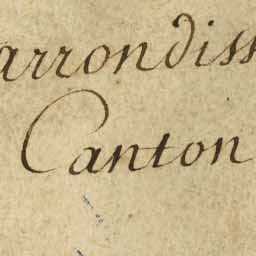 arrondiss
Canton